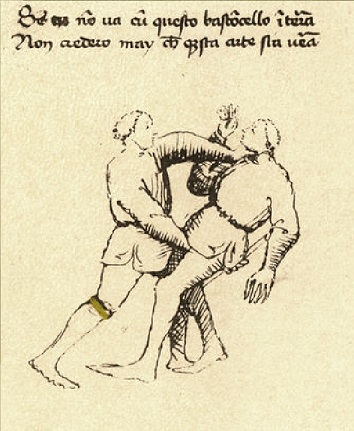 Se tu nō va cū questo bastōcello ī terā
Non crederò may ch̄ q̄sta arte sia veā